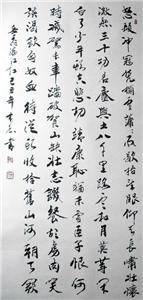 怒髮沖冠憑欄處瀟瀟雨歇抬望眼仰天長嘯壯懷
激烈三十功名塵與土八千里路雲和月莫等閒
白了少年頭空悲切靖康恥猶未雪臣子恨何
時滅駕長車踏破賀蘭山缺壯志饑餐胡虜肉笑
談渴飲匈奴血待從頭收拾舊山河朝天闕
岳飛滿江紅己丑年書